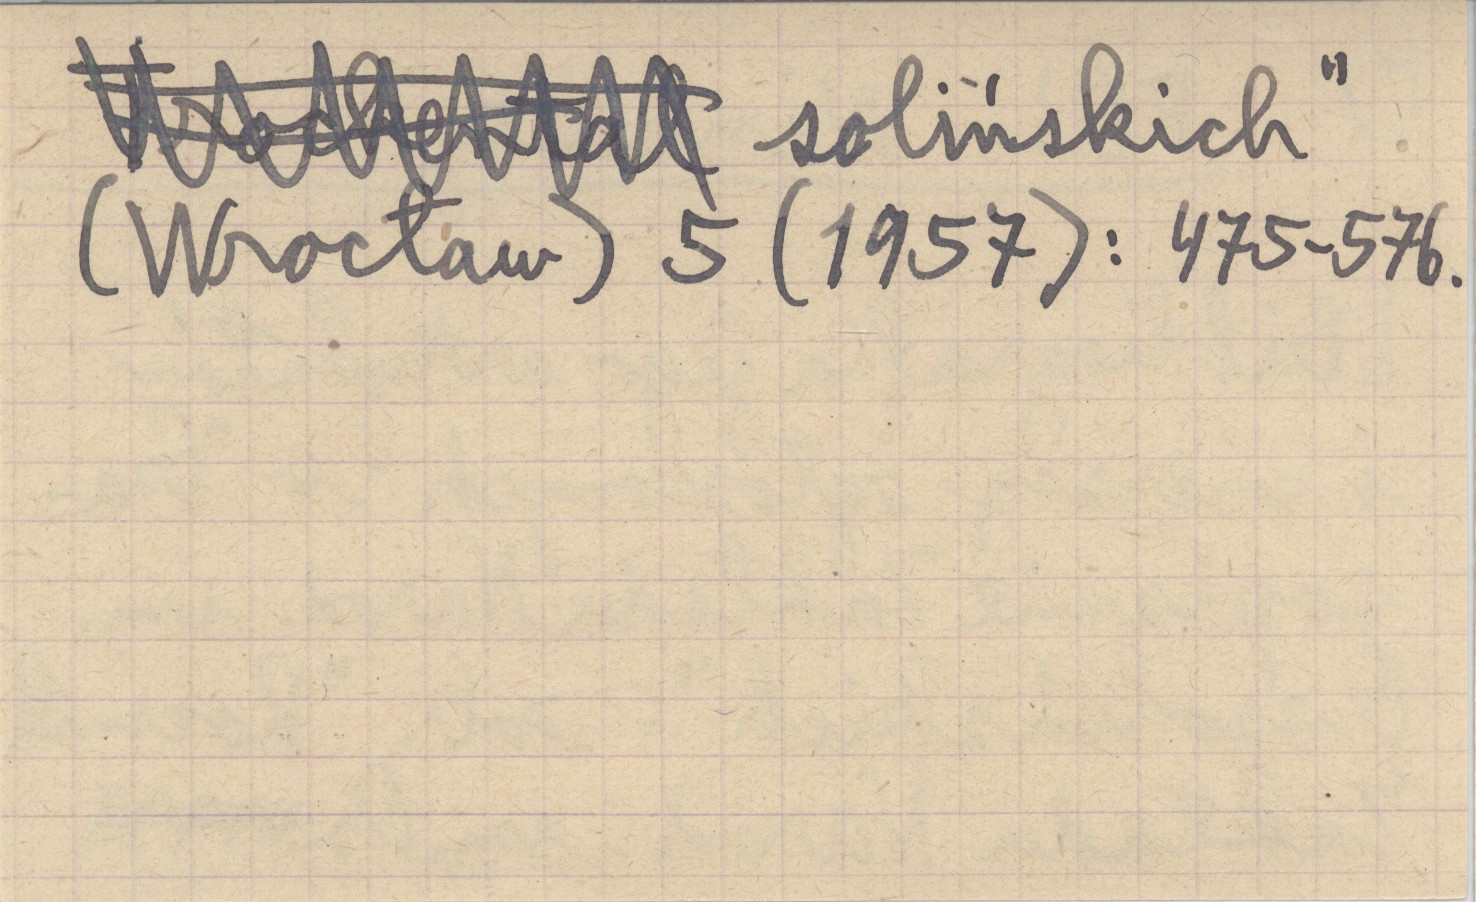 solińskich"
(Wrocław) 5 (1957): 475-576.